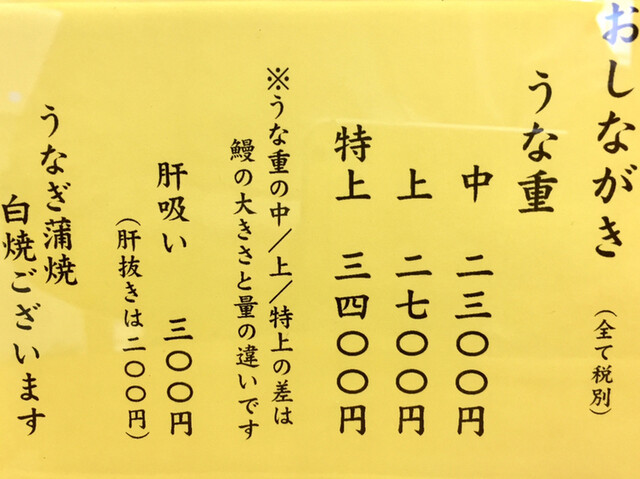 おしながき
(全て税別)
うな重
中 二三〇〇円
上 二七〇〇円
特上 三四〇〇円
※うな重の中/上/特上の差は
鰻の大きさと量の違いです
肝吸い 三〇〇円
(肝抜きは二〇〇円)
うなぎ蒲焼
白焼ございます